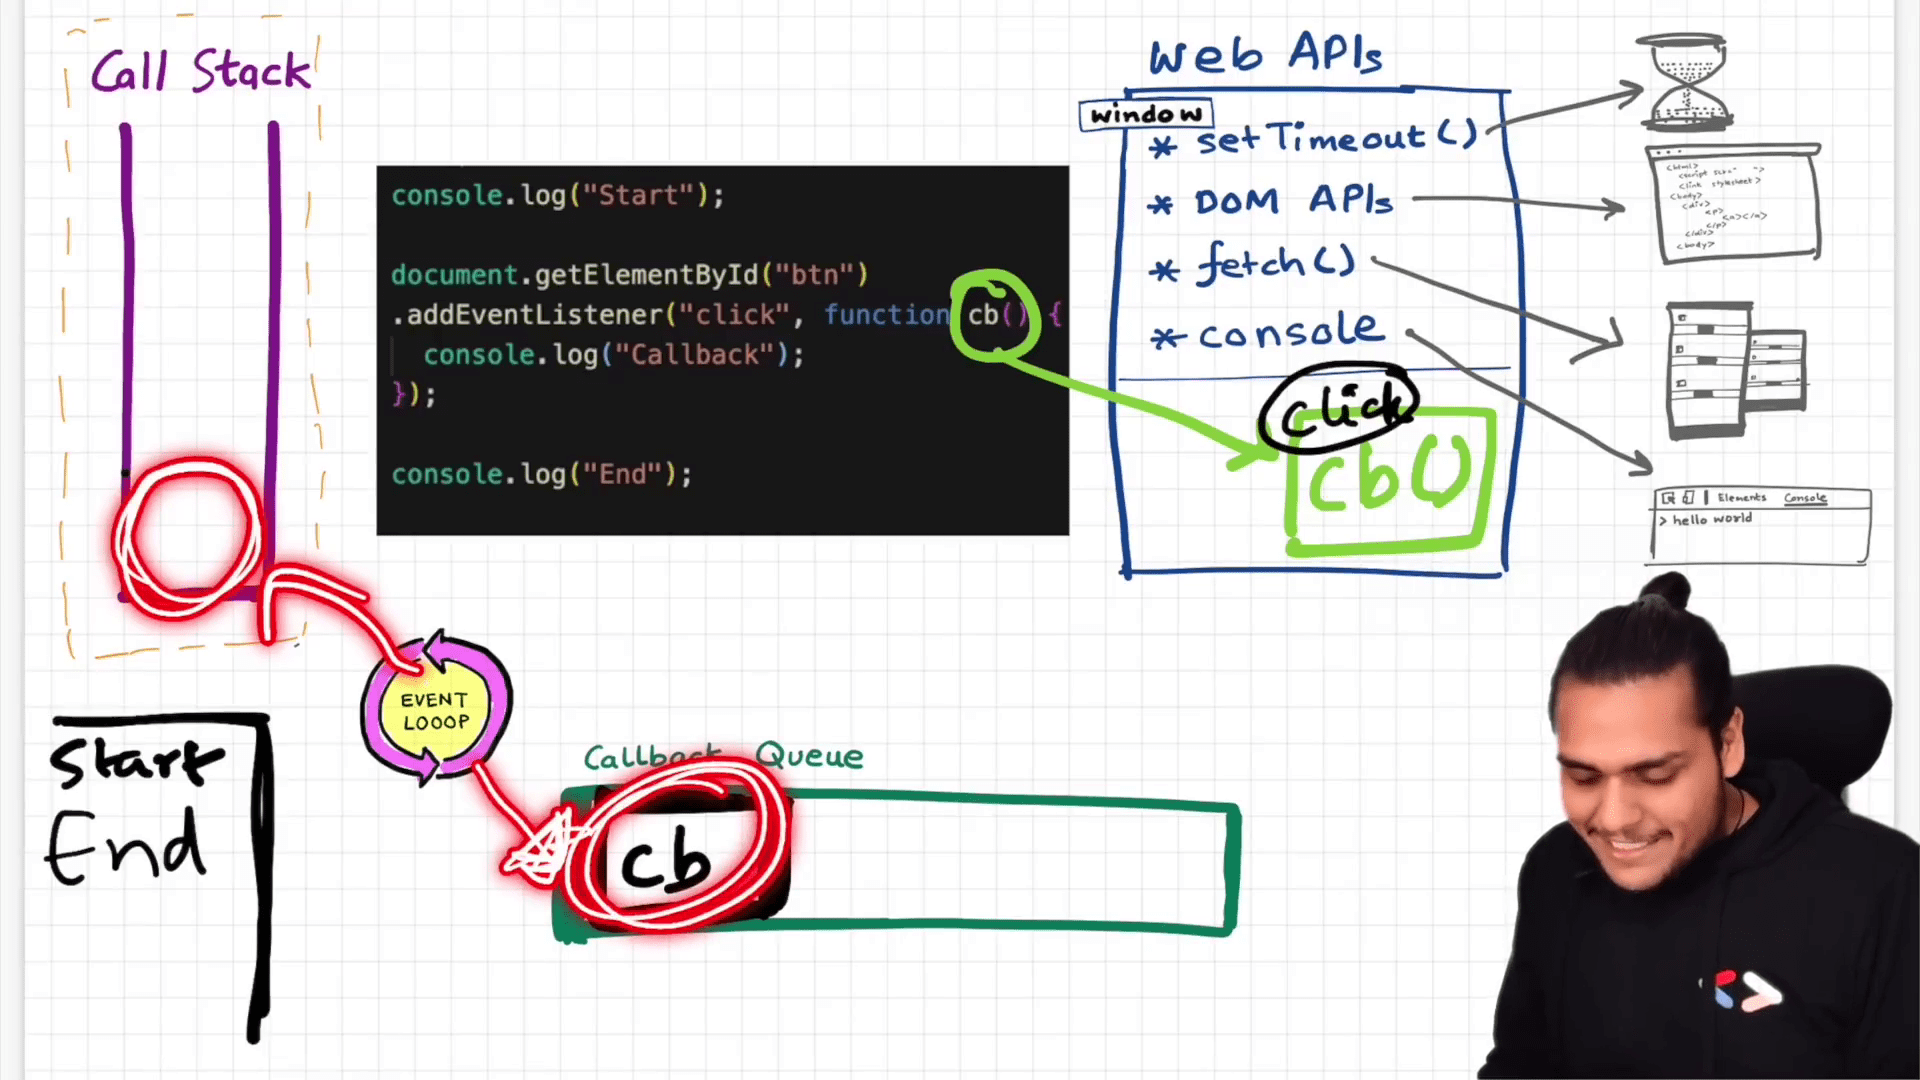 Call Stack
console.log("Start");
document.getElementById("btn")
.addEventListener("click", function cb() {
console.log("Callback");
});
console.log("End");
Web APIs
window
* setTimeout()
* DOM APIs
* fetch()
* console
click
cb()
<html>
<script src=" ">
<link stylesheet>
<body>
<div>
<p>
<a></a>
</p>
</div>
<body>
Elements Console
> hello world
EVENT
LOOOP
Start
End
Callback Queue
cb